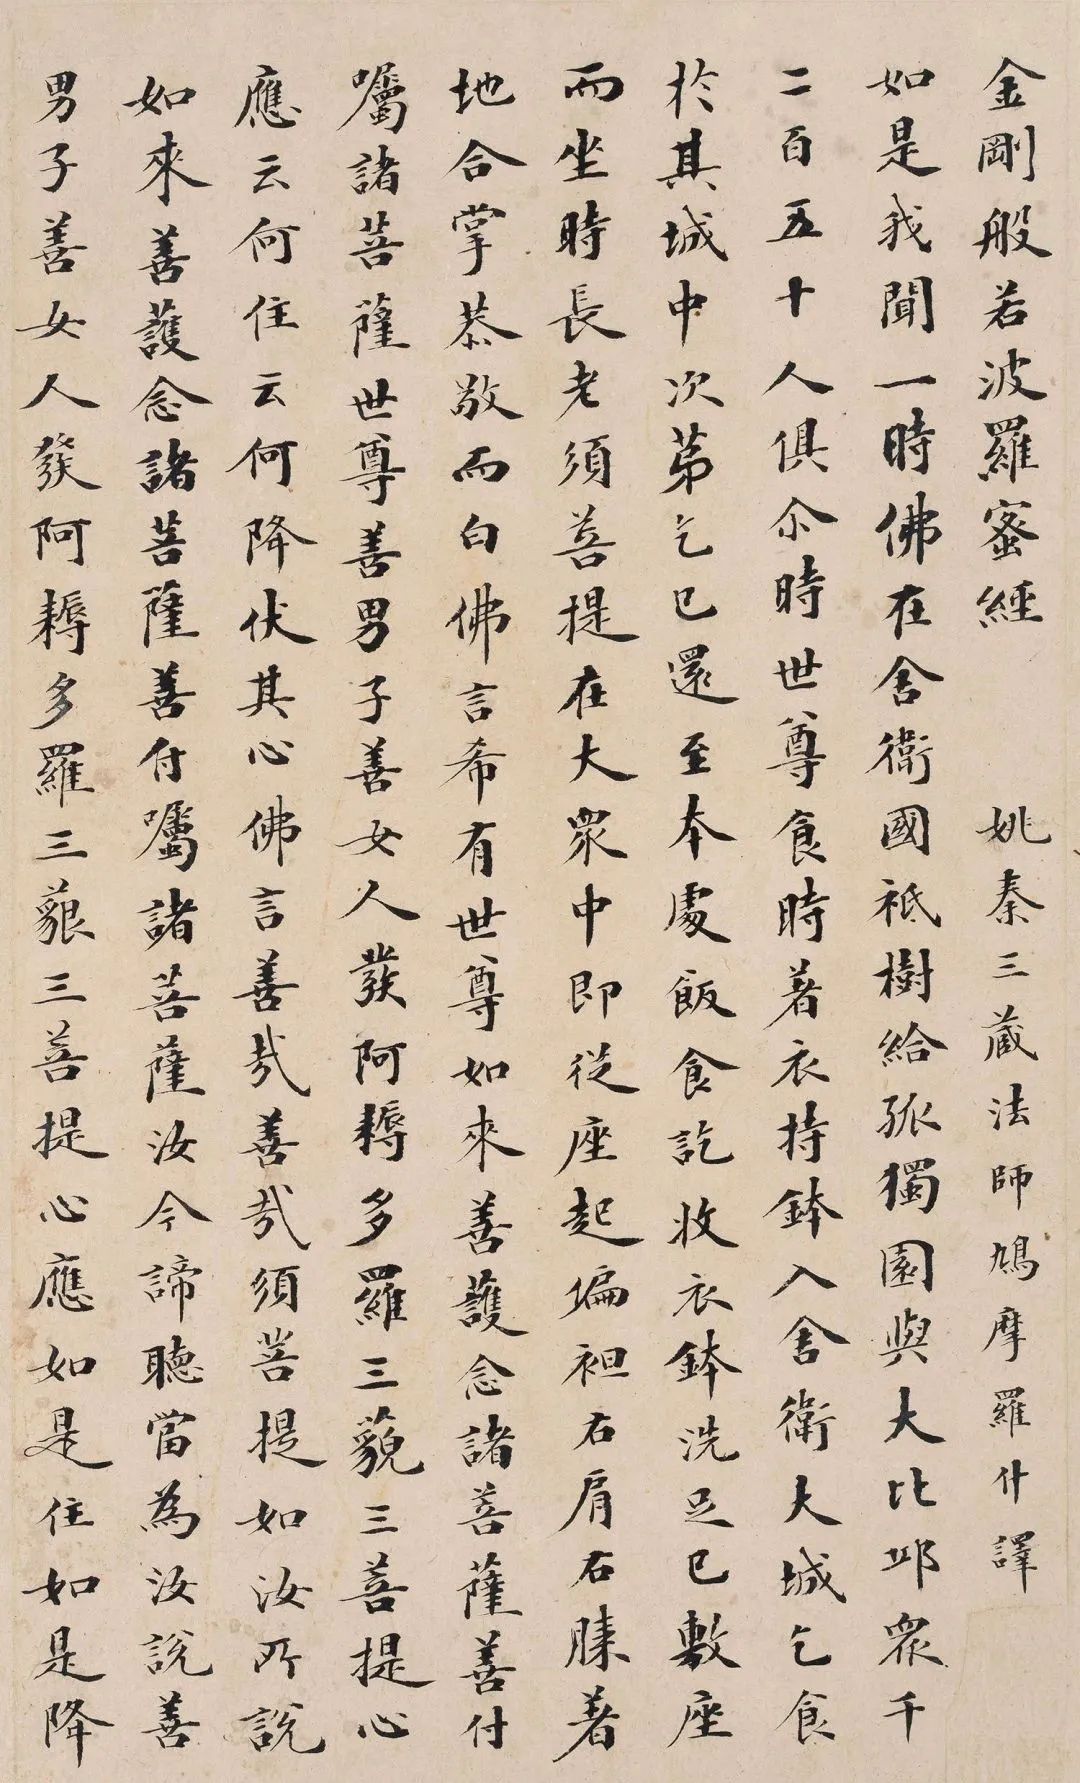 金剛般若波羅蜜經 姚秦三蔵法師鳩摩羅什譯
如是我聞一時佛在舍衛國祇樹給孤獨園與大比邱眾千
二百五十人俱尒時世尊食時著衣持鉢入舍衛大城乞食
於其城中次苐乞已還至本處飯食訖收衣鉢洗足已敷座
而坐時長老須菩提在大眾中即從座起偏袒右肩右膝著
地合掌恭敬而白佛言希有世尊如來善護念諸菩薩善付
囑諸菩薩世尊善男子善女人發阿耨多羅三藐三菩提心
應云何住云何降伏其心佛言善哉善哉須菩提如汝所說
如來善護念諸菩薩善付囑諸菩薩汝今諦聽當為汝說善
男子善女人發阿耨多羅三藐三菩提心應如是住如是降